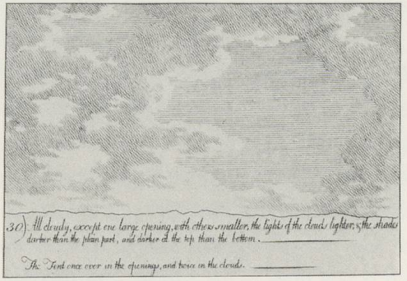 30) All cloudy, except one large opening, with others smaller, the lights of the clouds lighter, & the shades
darker than the plain part, and darker at the top than the bottom.
The Tint once over in the openings, and twice in the clouds.